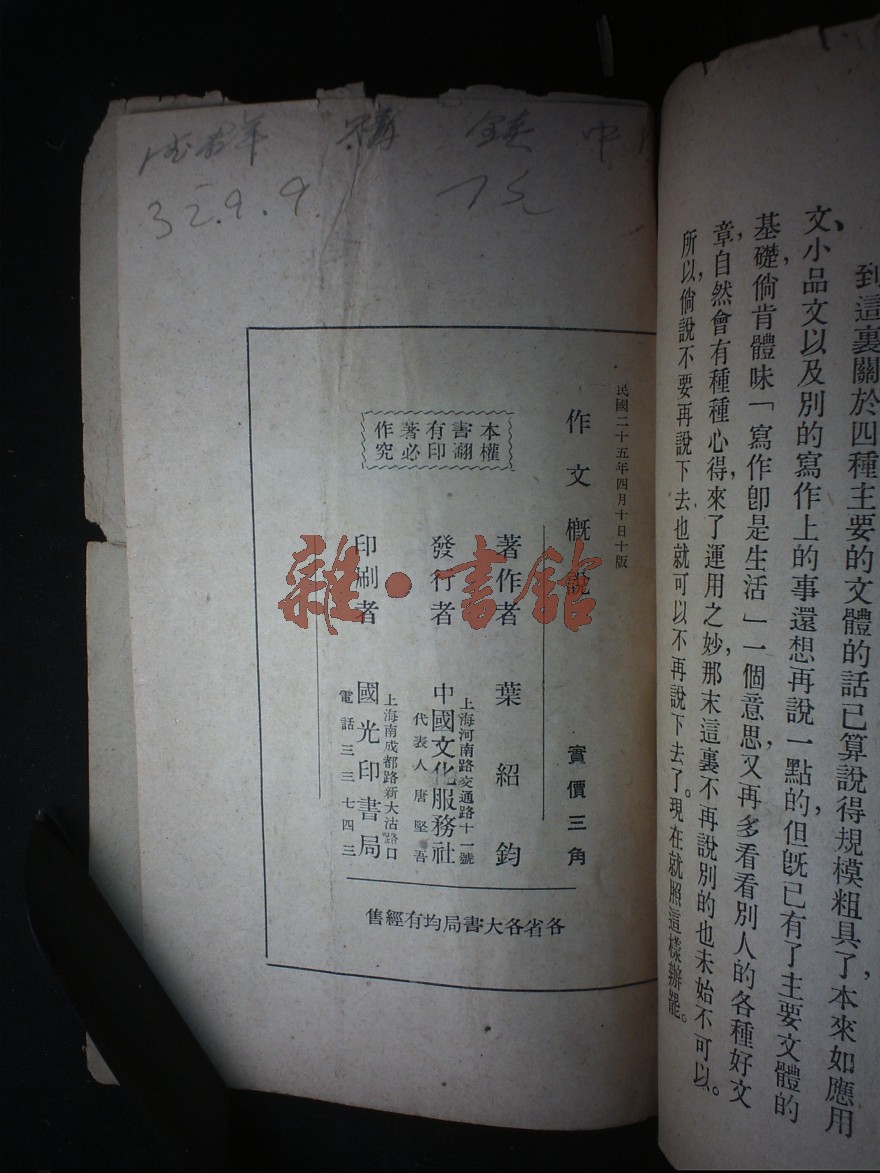 到這裏關於四種主要的文體的話已算說得規模粗具了，本來如應用
文、小品文以及別的寫作上的事還想再說一點的，但旣已有了主要文體的
基礎，倘肯體味「寫作卽是生活」一個意思，又再多看看別人的各種好文
章，自然會有種種心得，來了運用之妙，那末這裏不再說別的也未始不可以。
所以，倘說不要再說下去，也就可以不再說下去了。現在就照這樣辦罷。
32.9.9.
民國二十五年四月十日十版
作文概說
實價三角
本書有著作
權翻印必究
著作者 葉紹鈞
發行者 中國文化服務社
上海河南路交通路十一號
代表人唐堅吾
印刷者 國光印書局
上海南成都路新大沽路口
電話三三七四三
各省各大書局均有經售
雜·書館